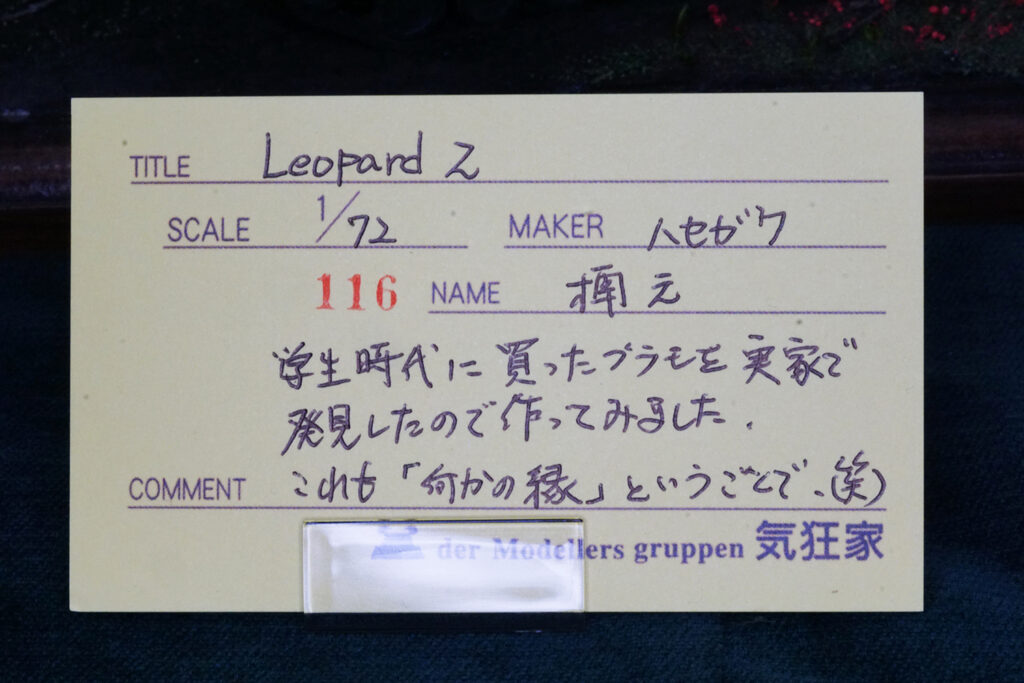 TITLE Leopard 2
SCALE 1/72 MAKER ハセガワ
116 NAME 楠 元
学生時代に買ったプラモを実家で
発見したので作ってみました.
COMMENT これも「何かの縁」というごとで、(笑)
der Modellers gruppen 気狂家